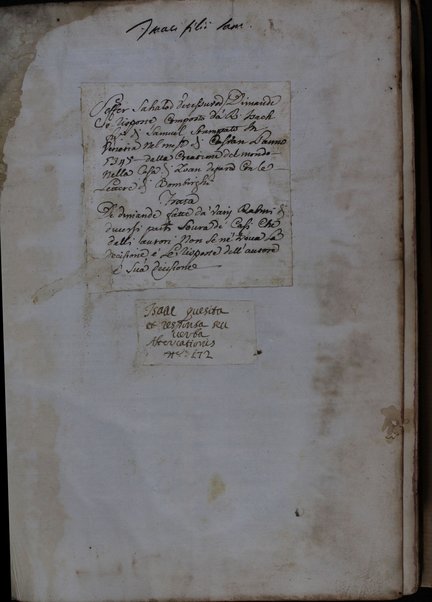 Isaac filii Sam.
Soffer Sahalod Utessuvod / Dimande
e Risposte Composto da R. Isach
figlio di Samuel Stampato In
Venetia nel mese di Casvan L'anno
5345 della Creatione del mondo
nella Casa di Zuan de Gara Con le
Lettere di Bombirghi
Trata
Di dimande fatte da Varij Rabini di
diversi parti Soura de Casi Che
delli autori Non se ne trova la
decisione e le Risposte dell'autore
e Sua decisione
Isaac quesita
et responsa seu
verba
Altercationis
no. 172